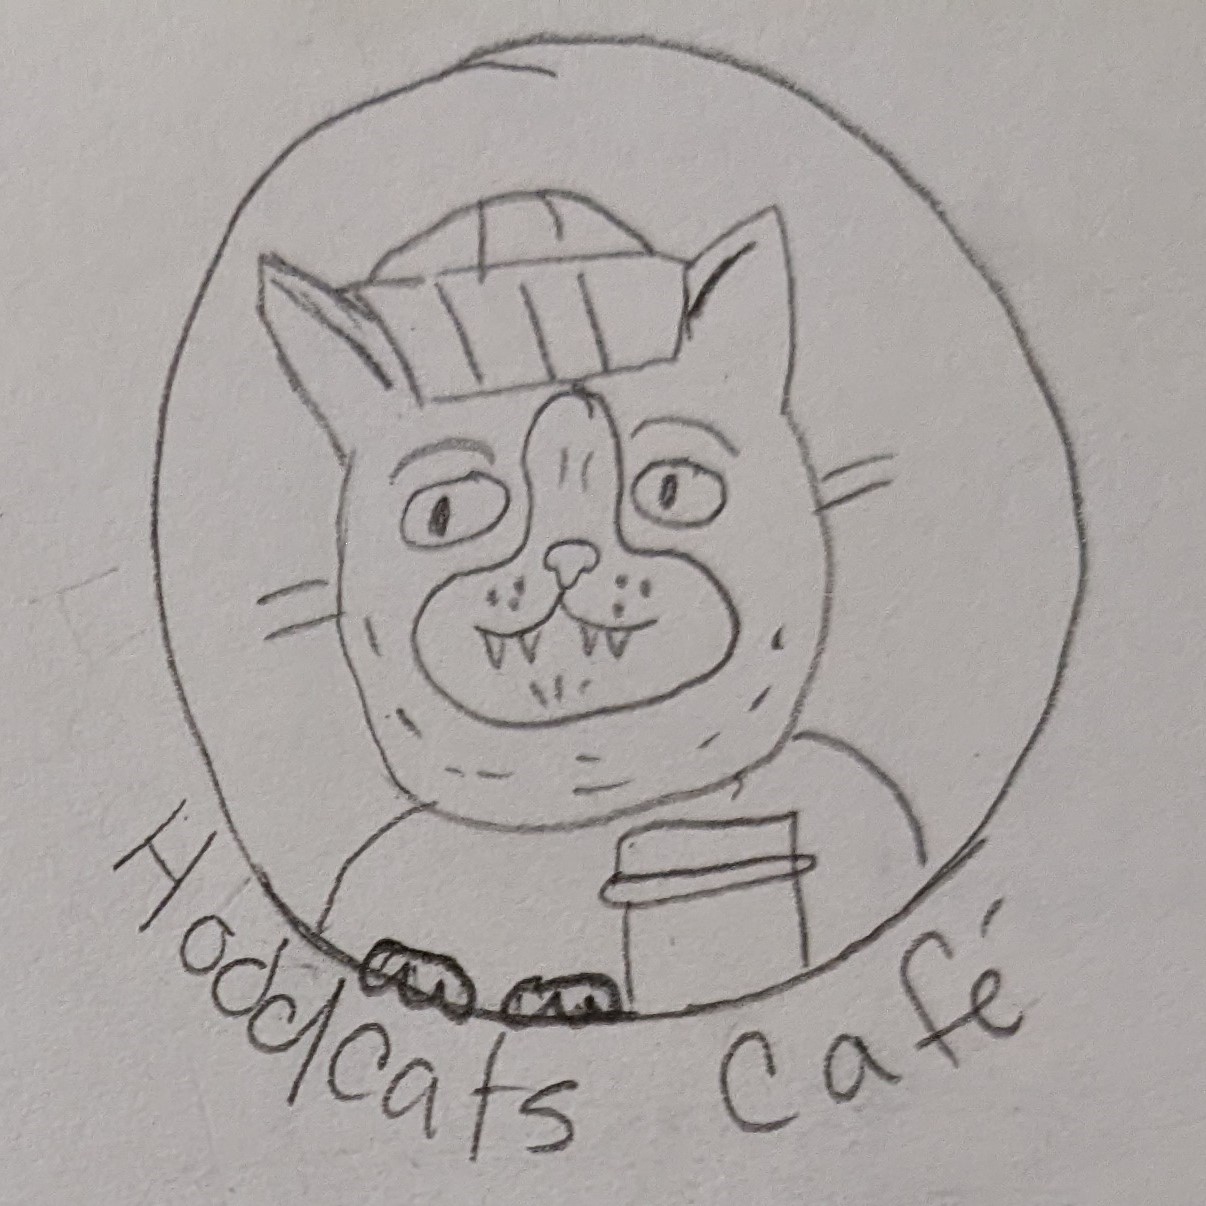 Hoodcats Café